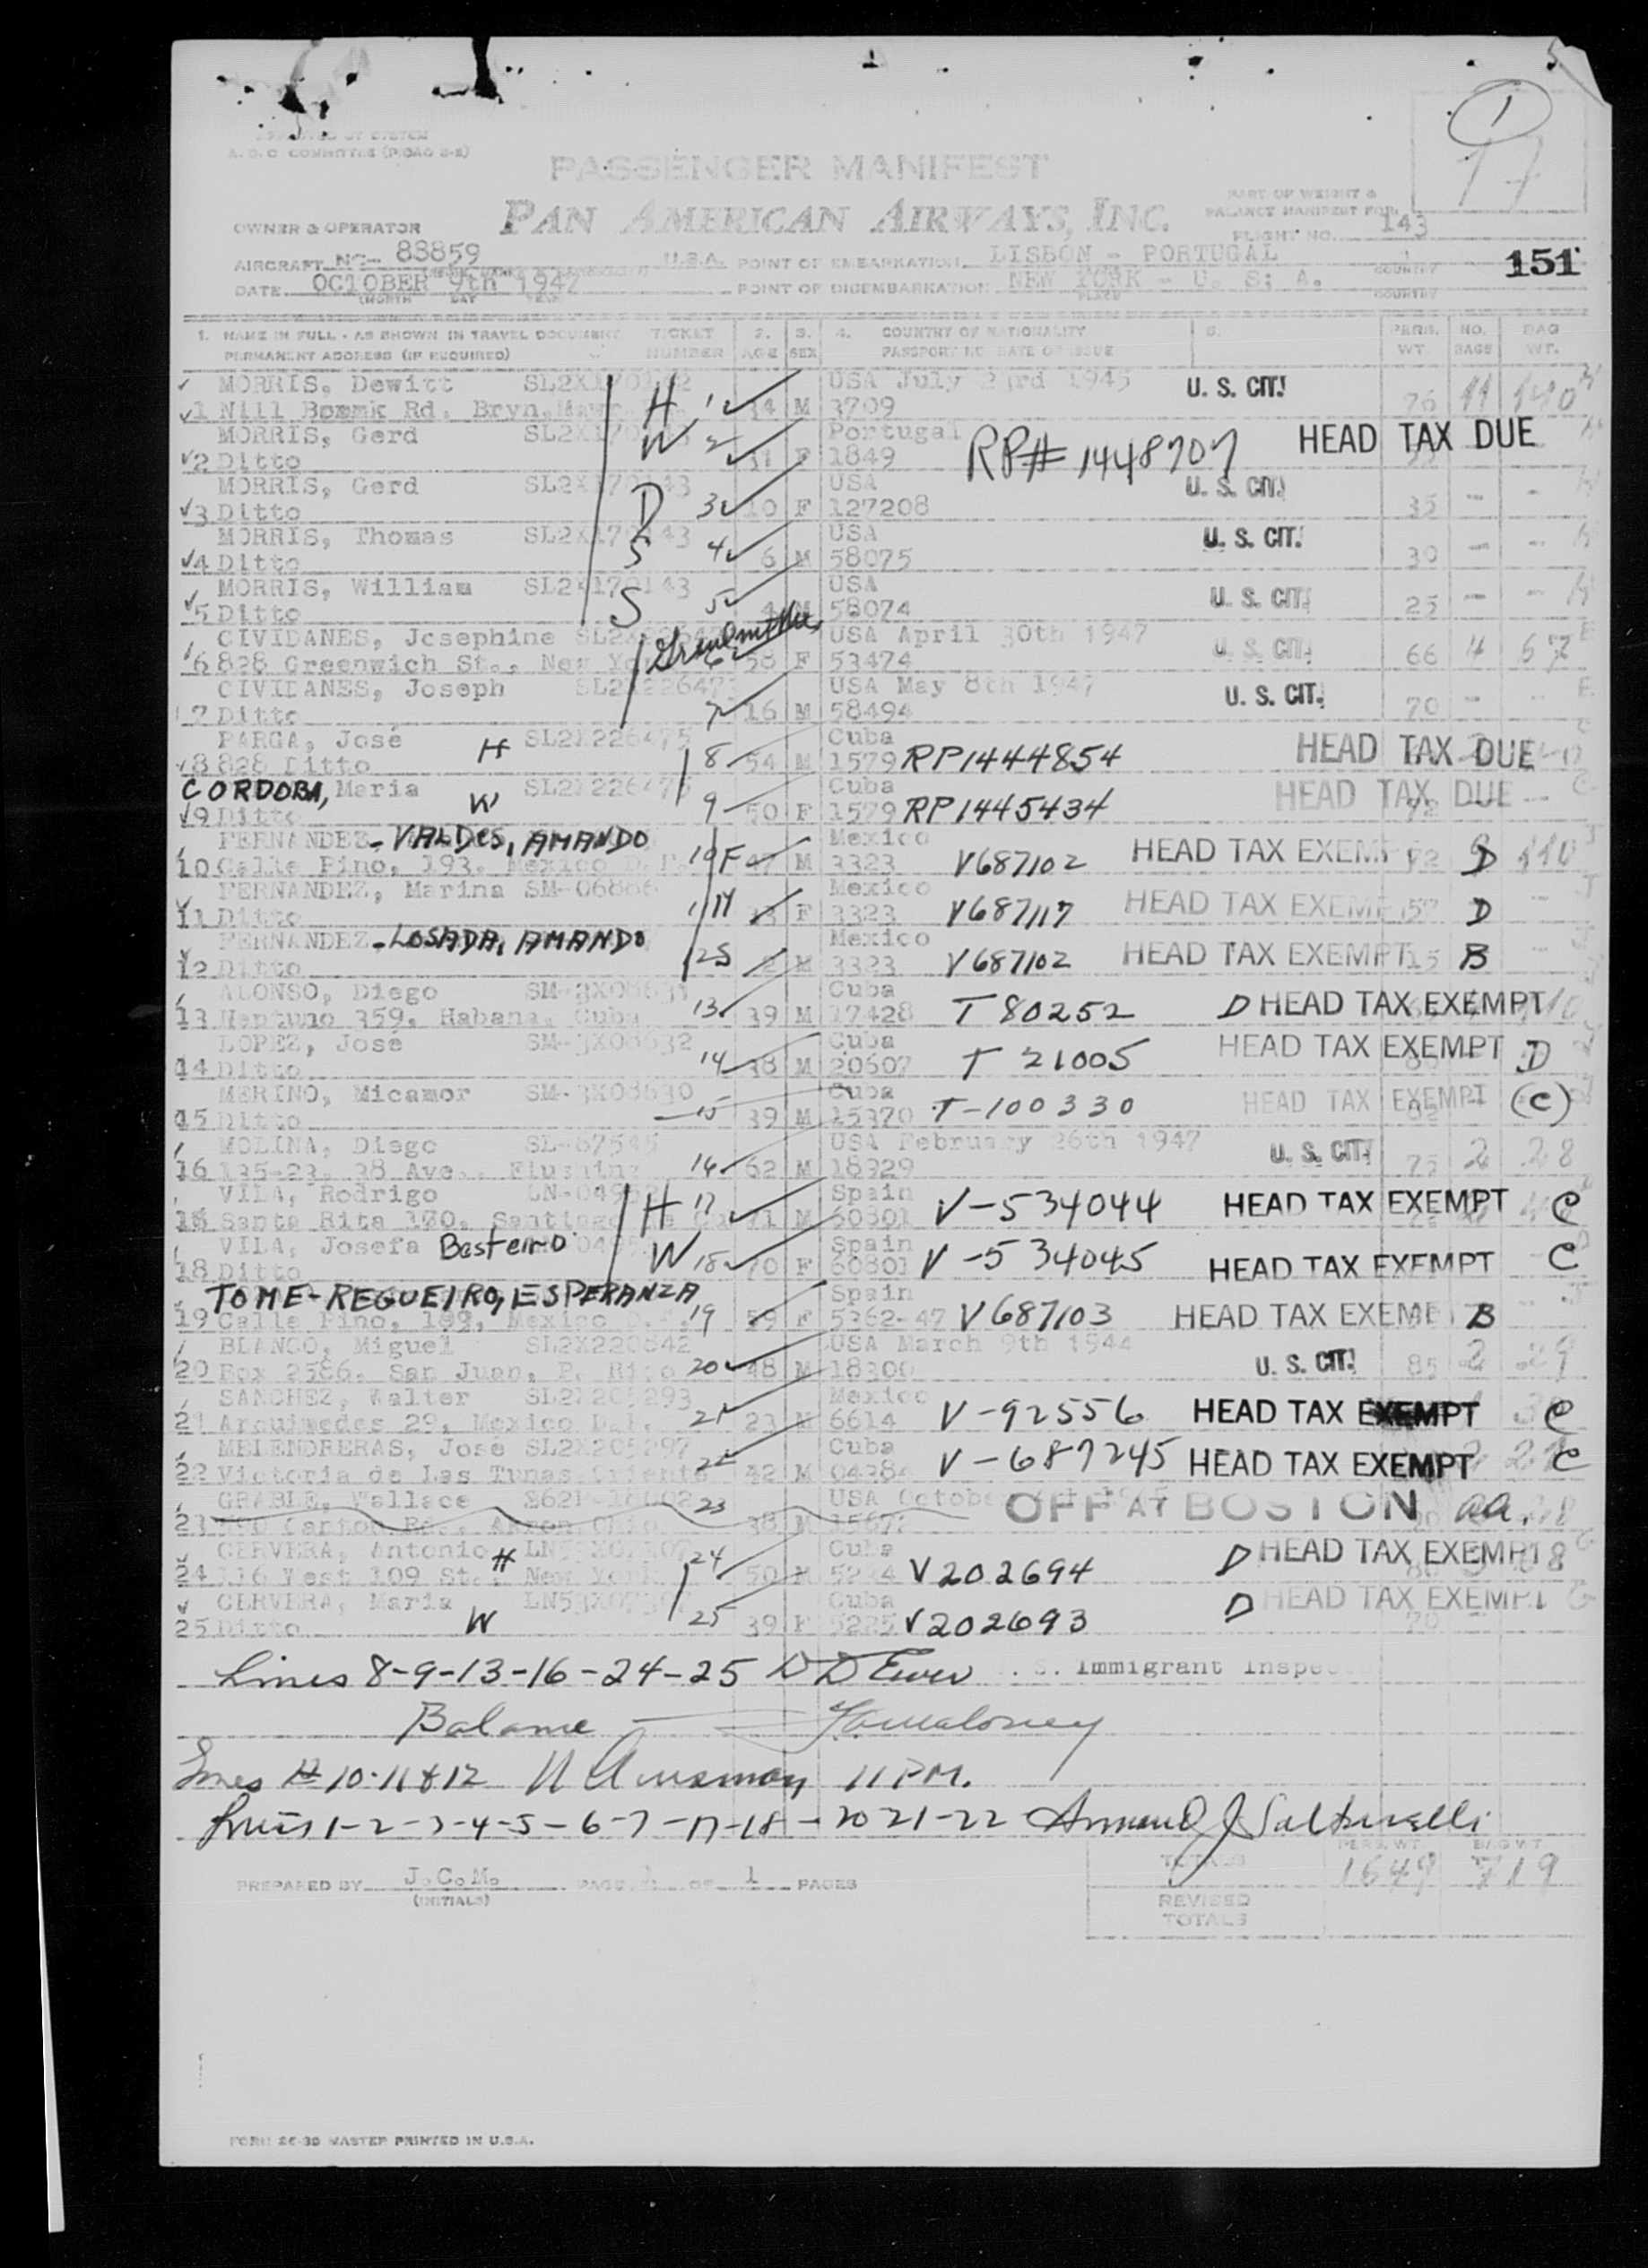 A. O. C COMMITTEE
PASSENGER MANIFEST
PAN AMERICAN AIRWAYS, INC.
OWNER & OPERATOR
PART OF WEIGHT &
BALANCE MANIFEST FOR
FLIGHT NO. 143
AIRCRAFT NC- 88859 U.S.A. POINT OF EMBARKATION LISBON - PORTUGAL COUNTRY 151
DATE OCTOBER 9th 1947 POINT OF DISEMBARKATION NEW YORK - U. S; A. COUNTRY
(MONTH DAY YEAR) PLACE
1. NAME IN FULL - AS SHOWN IN TRAVEL DOCUMENT TICKET 2. 3. 4. COUNTRY OF NATIONALITY 5. PERS. NO. BAG
PERMANENT ADDRESS (IF REQUIRED) NUMBER AGE SEX PASSPORT NO DATE OF ISSUE WT. BAGS WT.
MORRIS, Dewitt USA July 23rd 1945 U. S. CIT.
1 Rd. Bryn H 1 34 M 3709 76 11 140
MORRIS, Gerd W 2 Portugal RP# 1448707 HEAD TAX DUE
2 Ditto 31 F 1849
MORRIS, Gerd USA U. S. CIT.
3 Ditto D 3 10 F 127208 35 - -
MORRIS, Thomas USA U. S. CIT.
4 Ditto S 4 6 M 58075 39 - -
MORRIS, William SL2X170143 USA U. S. CIT.
5 Ditto S 5 4 M 58074 25 - -
CIVIDANES, Josephine Grandmother USA April 30th 1947 U. S. CIT.
6 828 Greenwich St., New 6 58 F 53474 66 4 57
CIVIDANES, Joseph USA May 8th 1947 U. S. CIT.
7 Ditto 7 16 M 58494 70 - -
PARGA, José H SL2X226475 Cuba HEAD TAX DUE
8 828 Ditto 8 54 M 1579 RP1444854
CORDOBA, Maria W SL2X226475 Cuba HEAD TAX DUE
9 Ditto 9 50 F 1579 RP1445434 72
FERNANDEZ - VALDES, AMANDO Mexico HEAD TAX EXEMPT
10 Calle Pino, 193, Mexico 10 F 47 M 3323 V687102 D 110
FERNANDEZ, Marina Mexico HEAD TAX EXEMPT
11 Ditto 11 M 33 F 3323 V687117 57 D
FERNANDEZ - LOSADA, AMANDO Mexico HEAD TAX EXEMPT
12 Ditto 12 S 2 M 3323 V687102 15 B
ALONSO, Diego Cuba D HEAD TAX EXEMPT
13 Neptuno 359, Habana, Cuba 13 39 M 17428 T 80252
LOPEZ, Jose SM-3X08632 Cuba HEAD TAX EXEMPT D
14 Ditto 14 38 M 20607 T 21005
MERINO, Micamor SM-3X08630 Cuba HEAD TAX EXEMPT (C)
15 Ditto 15 39 M 15370 T-100330
MOLINA, Diego USA February 26th 1947 U. S. CIT.
16 135-23, 38 Ave., Flushing 16 62 M 18929 75 2 28
VILA, Rodrigo H 17 Spain V-534044 HEAD TAX EXEMPT C
Santa Rita 170, Santiago de Cu 71 M 60801
VILA, Josefa Besteiro W 18 Spain V-534045 HEAD TAX EXEMPT C
18 Ditto 70 F 60801
TOME-REGUEIRO, ESPERANZA Spain
19 Calle Pino, Mexico 19 59 F 5362-47 V687103 HEAD TAX EXEMPT B
BLANCO, Miguel SL2X220842 USA March 9th 1944
20 Box 2586, San Juan, P. Rico 20 48 M 18300 U. S. CIT. 85 2 29
SANCHEZ, Walter SL2X205293 Mexico
21 Arquimedes 29, Mexico 21 23 M 6614 V-92556 HEAD TAX EXEMPT C
MELENDRERAS, Jose SL2X205297 Cuba V-687245 HEAD TAX EXEMPT C
22 Victoria de Las Tunas Oriente 22 42 M
GRABLE, Wallace 23 USA October OFF AT BOSTON aa.
23 Canton Rd., Akron Ohio 38 M
CERVERA, Antonio H 24 Cuba D HEAD TAX EXEMPT
24 116 West 109 St., New York 50 M V202694
CERVERA, Maria Cuba D HEAD TAX EXEMPT
25 Ditto W 25 39 F 5225 V202693
Lines 8-9-13-16-24-25 U. S. Immigrant Inspector
Balance
Lines 10-11 & 12 11 PM.
Lines 1-2-3-4-5-6-7-17-18-20 21-22
TOTALS PERS. WT. 1649 BAG WT 719
PREPARED BY J.C.M. PAGE 1 OF 1 PAGES
(INITIALS)
REVISED
TOTALS
FORM MASTER PRINTED IN U.S.A.